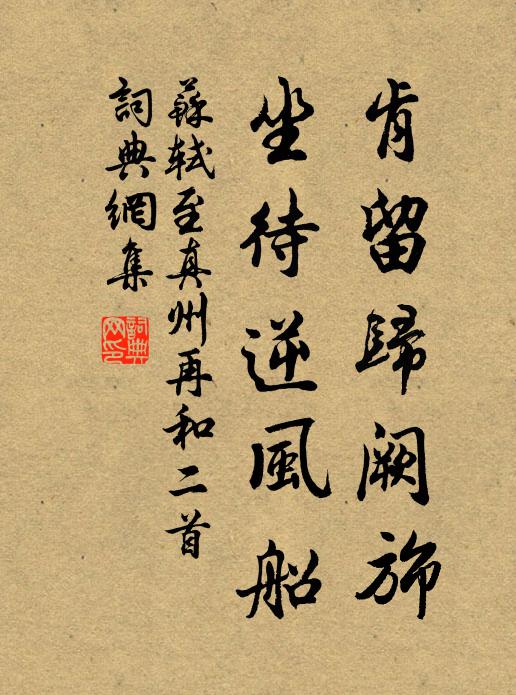 肯留歸闕旆
坐待逆風船
蘇軾至真州再和二首
詞典網集
詞典網印